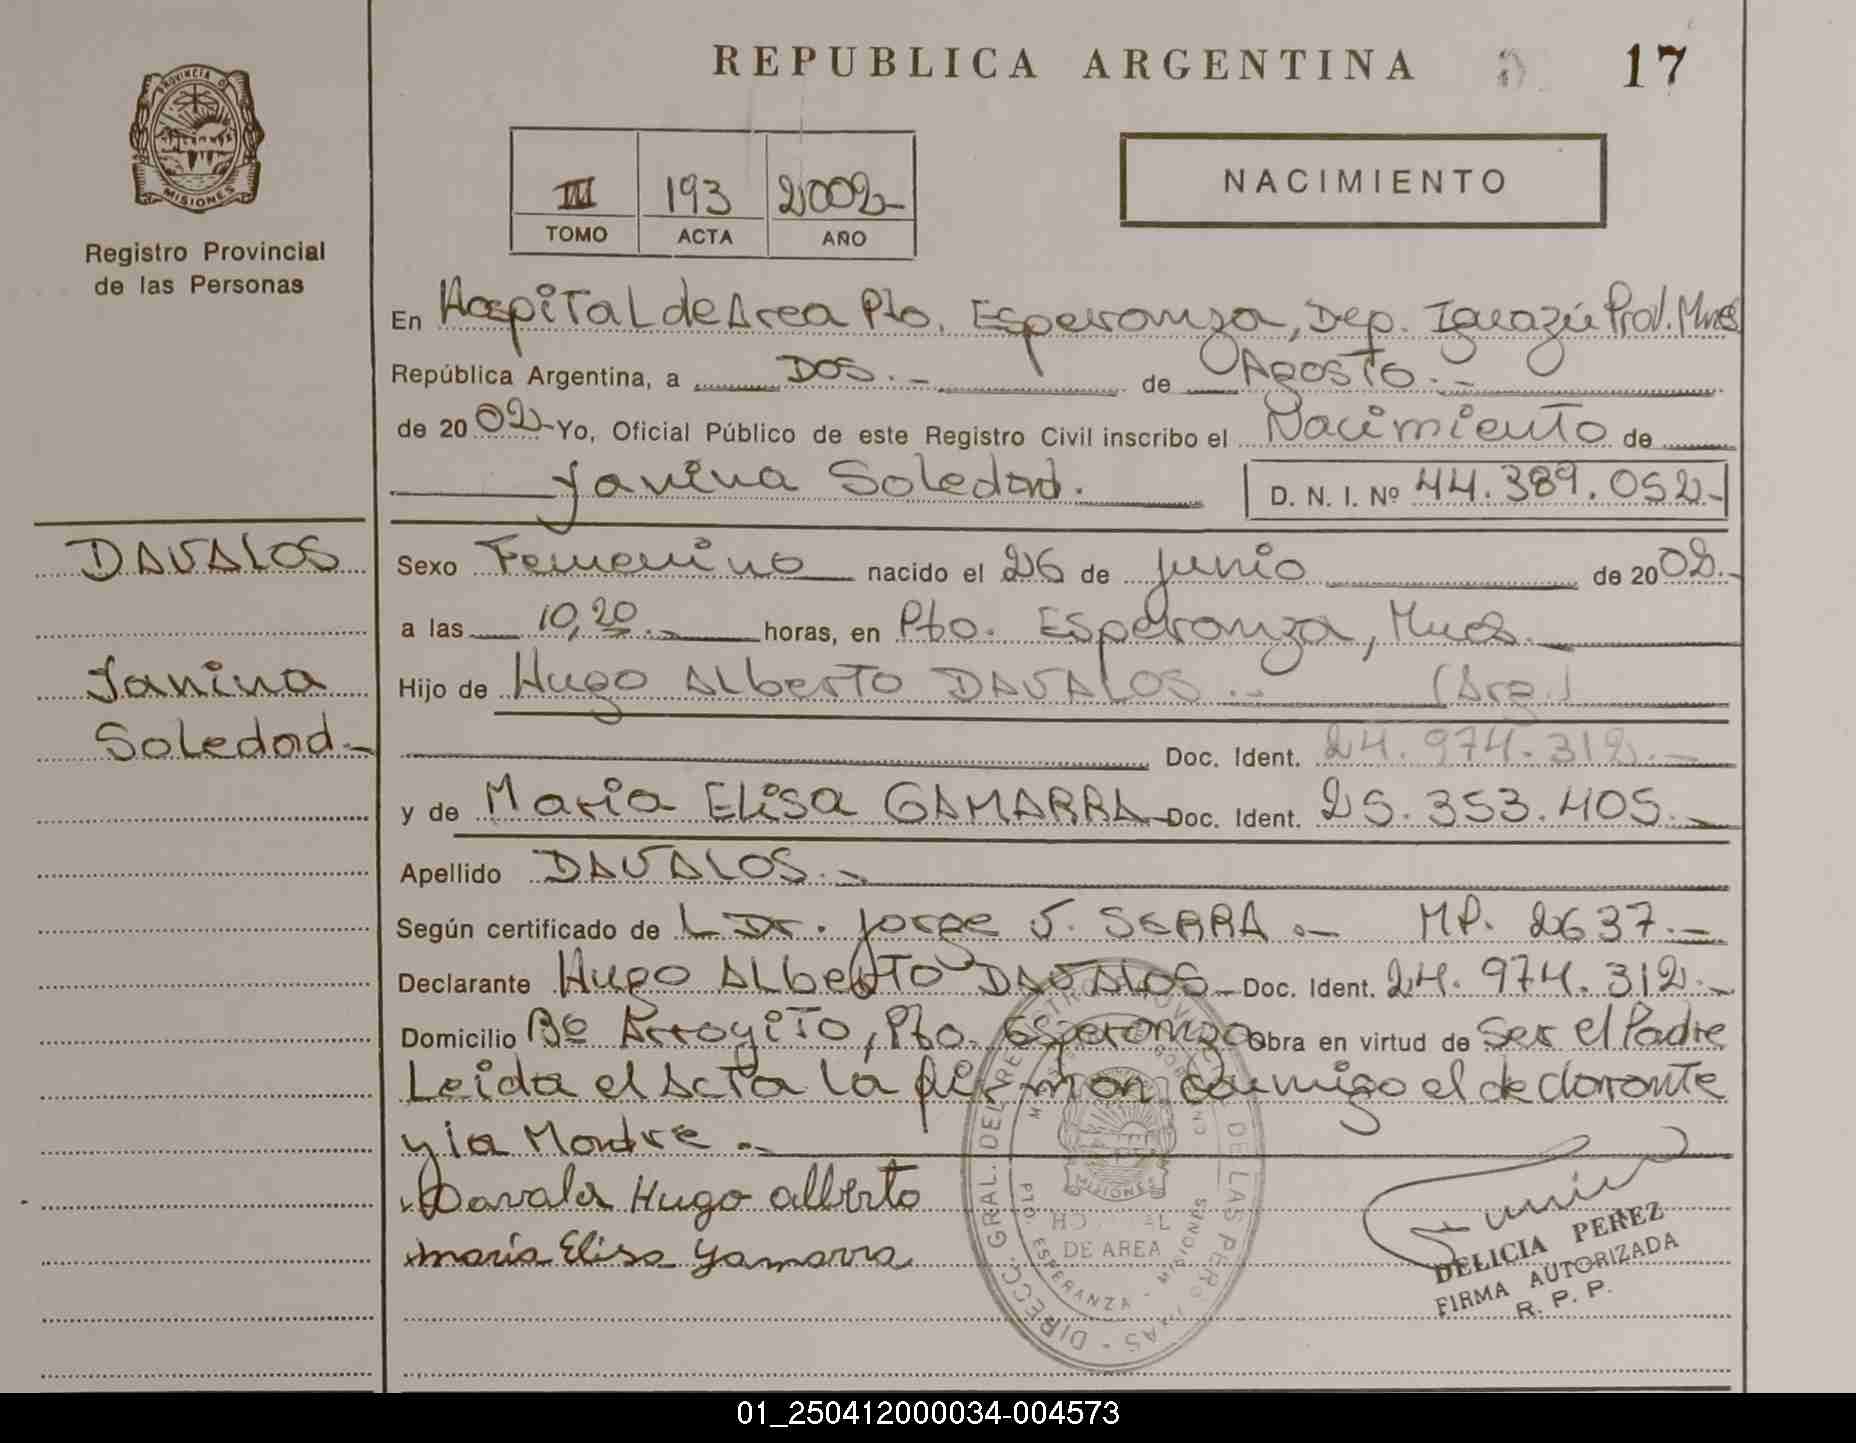 REPUBLICA ARGENTINA 17
PROVINCIA DE MISIONES
Registro Provincial
de las Personas
III 193 2002-
TOMO ACTA AÑO
NACIMIENTO
En Hospital de Area Pto. Esperanza, Dep. Iguazú Prov. Mnes
República Argentina, a DOS.- de Agosto.-
de 2002- Yo, Oficial Público de este Registro Civil inscribo el Nacimiento de
Yanina Soledad. D. N. I. Nº 44.389.052.-
DAVALOS
Yanina
Soledad.-
Sexo Femenino nacido el 26 de junio de 2002.-
a las 10,20.- horas, en Pto. Esperanza, Mnes.
Hijo de Hugo Alberto DAVALOS.- (Arg.)
Doc. Ident. 24.974.312.-
y de Maria Elisa GAMARRA- Doc. Ident. 25.353.405.-
Apellido DAVALOS.-
Según certificado de L Dr. Jorge J. SERRA.- MP. 2637.-
Declarante Hugo Alberto DAVALOS- Doc. Ident. 24.974.312.-
Domicilio Bº Arroyito, Pto. Esperanza Obra en virtud de Ser el Padre
Leida el Acta la firman conmigo el declarante
y la Madre.-
Davalos Hugo alberto
maría Elisa gamarra
DIRECC. GRAL. DEL REGISTRO DE LAS PERSONAS
MISIONES
HOSPITAL
DE AREA
PTO. ESPERANZA - MISIONES
DELICIA PEREZ
FIRMA AUTORIZADA
R. P. P.
01_250412000034-004573